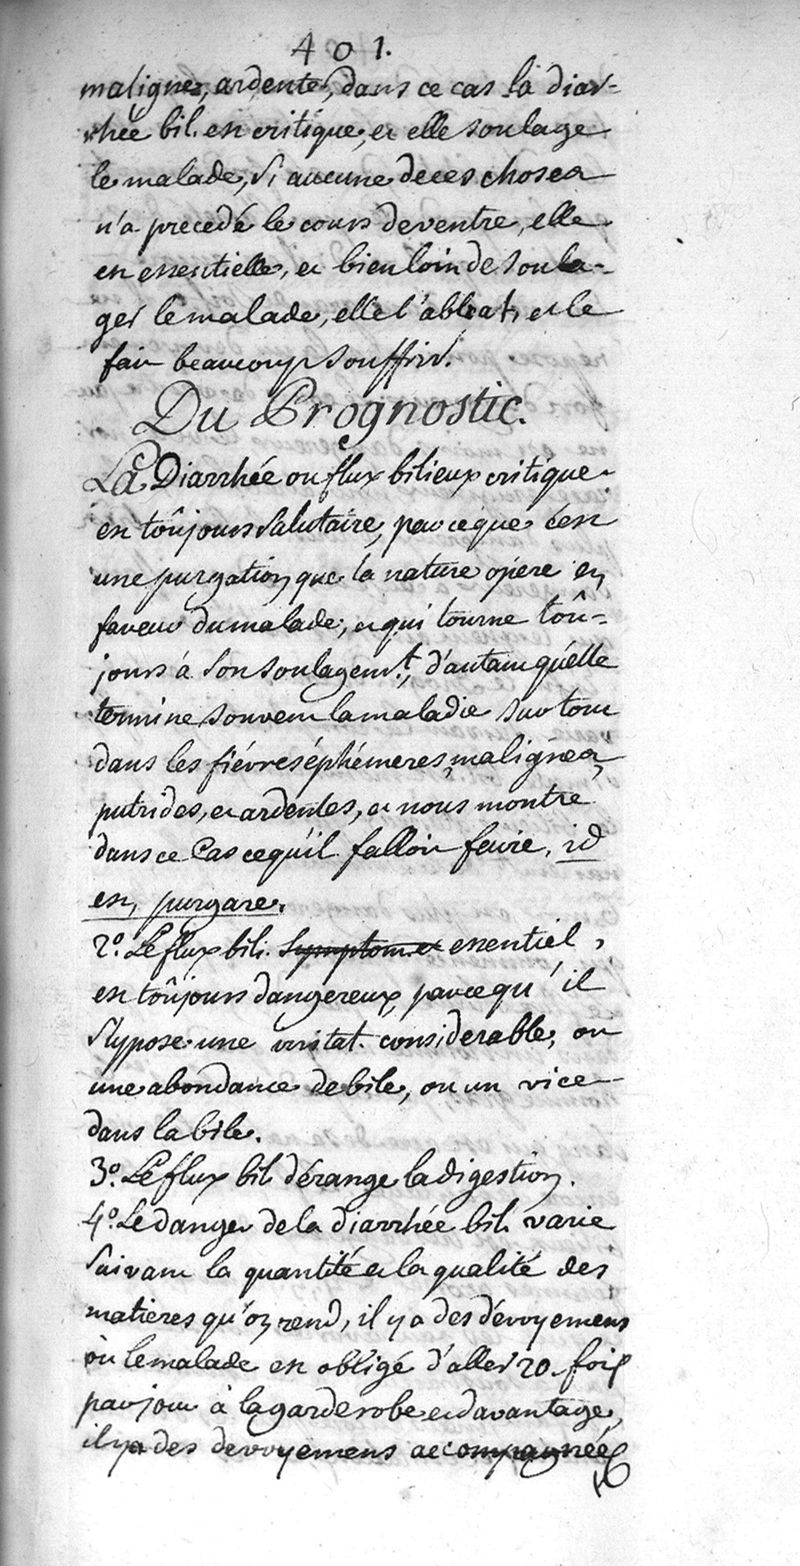 401.
malignes, ardentes, dans ce cas la diar-
rhée bil. est critique, et elle soulage
le malade, si aucune de ces choses
n'a precedé le cours de ventre, elle
est essentielle, et bien loin de soula-
ger le malade, elle l'abbat, et le
fait beaucoup souffrir.
Du Prognostic.
La Diarrhée ou flux bilieux critique
est toûjours salutaire, parceque c'est
une purgation que la nature opere en
faveur du malade, et qui tourne toû-
jours à son soulagem.t, d'autant qu'elle
termine souvent la maladie sur tout
dans les fiévres éphémeres, malignes,
putrides, et ardentes, et nous montre
dans ce cas ce qu'il falloit faire, id
est, purgare.
2.° Le flux bili. symptom. et essentiel,
est toûjours dangereux, parcequ'il
suppose une irritat. considerable, ou
une abondance de bile, ou un vice
dans la bile.
3.° Le flux bil. dérange la digestion.
4.° Le danger de la diarrhée bil. varie
suivant la quantité et la qualité des
matieres qu'on rend, il y a des dévoyemens
où le malade est obligé d'aller 20. fois
par jour à la garderobe et davantage,
il y a des devoyemens accompagnées